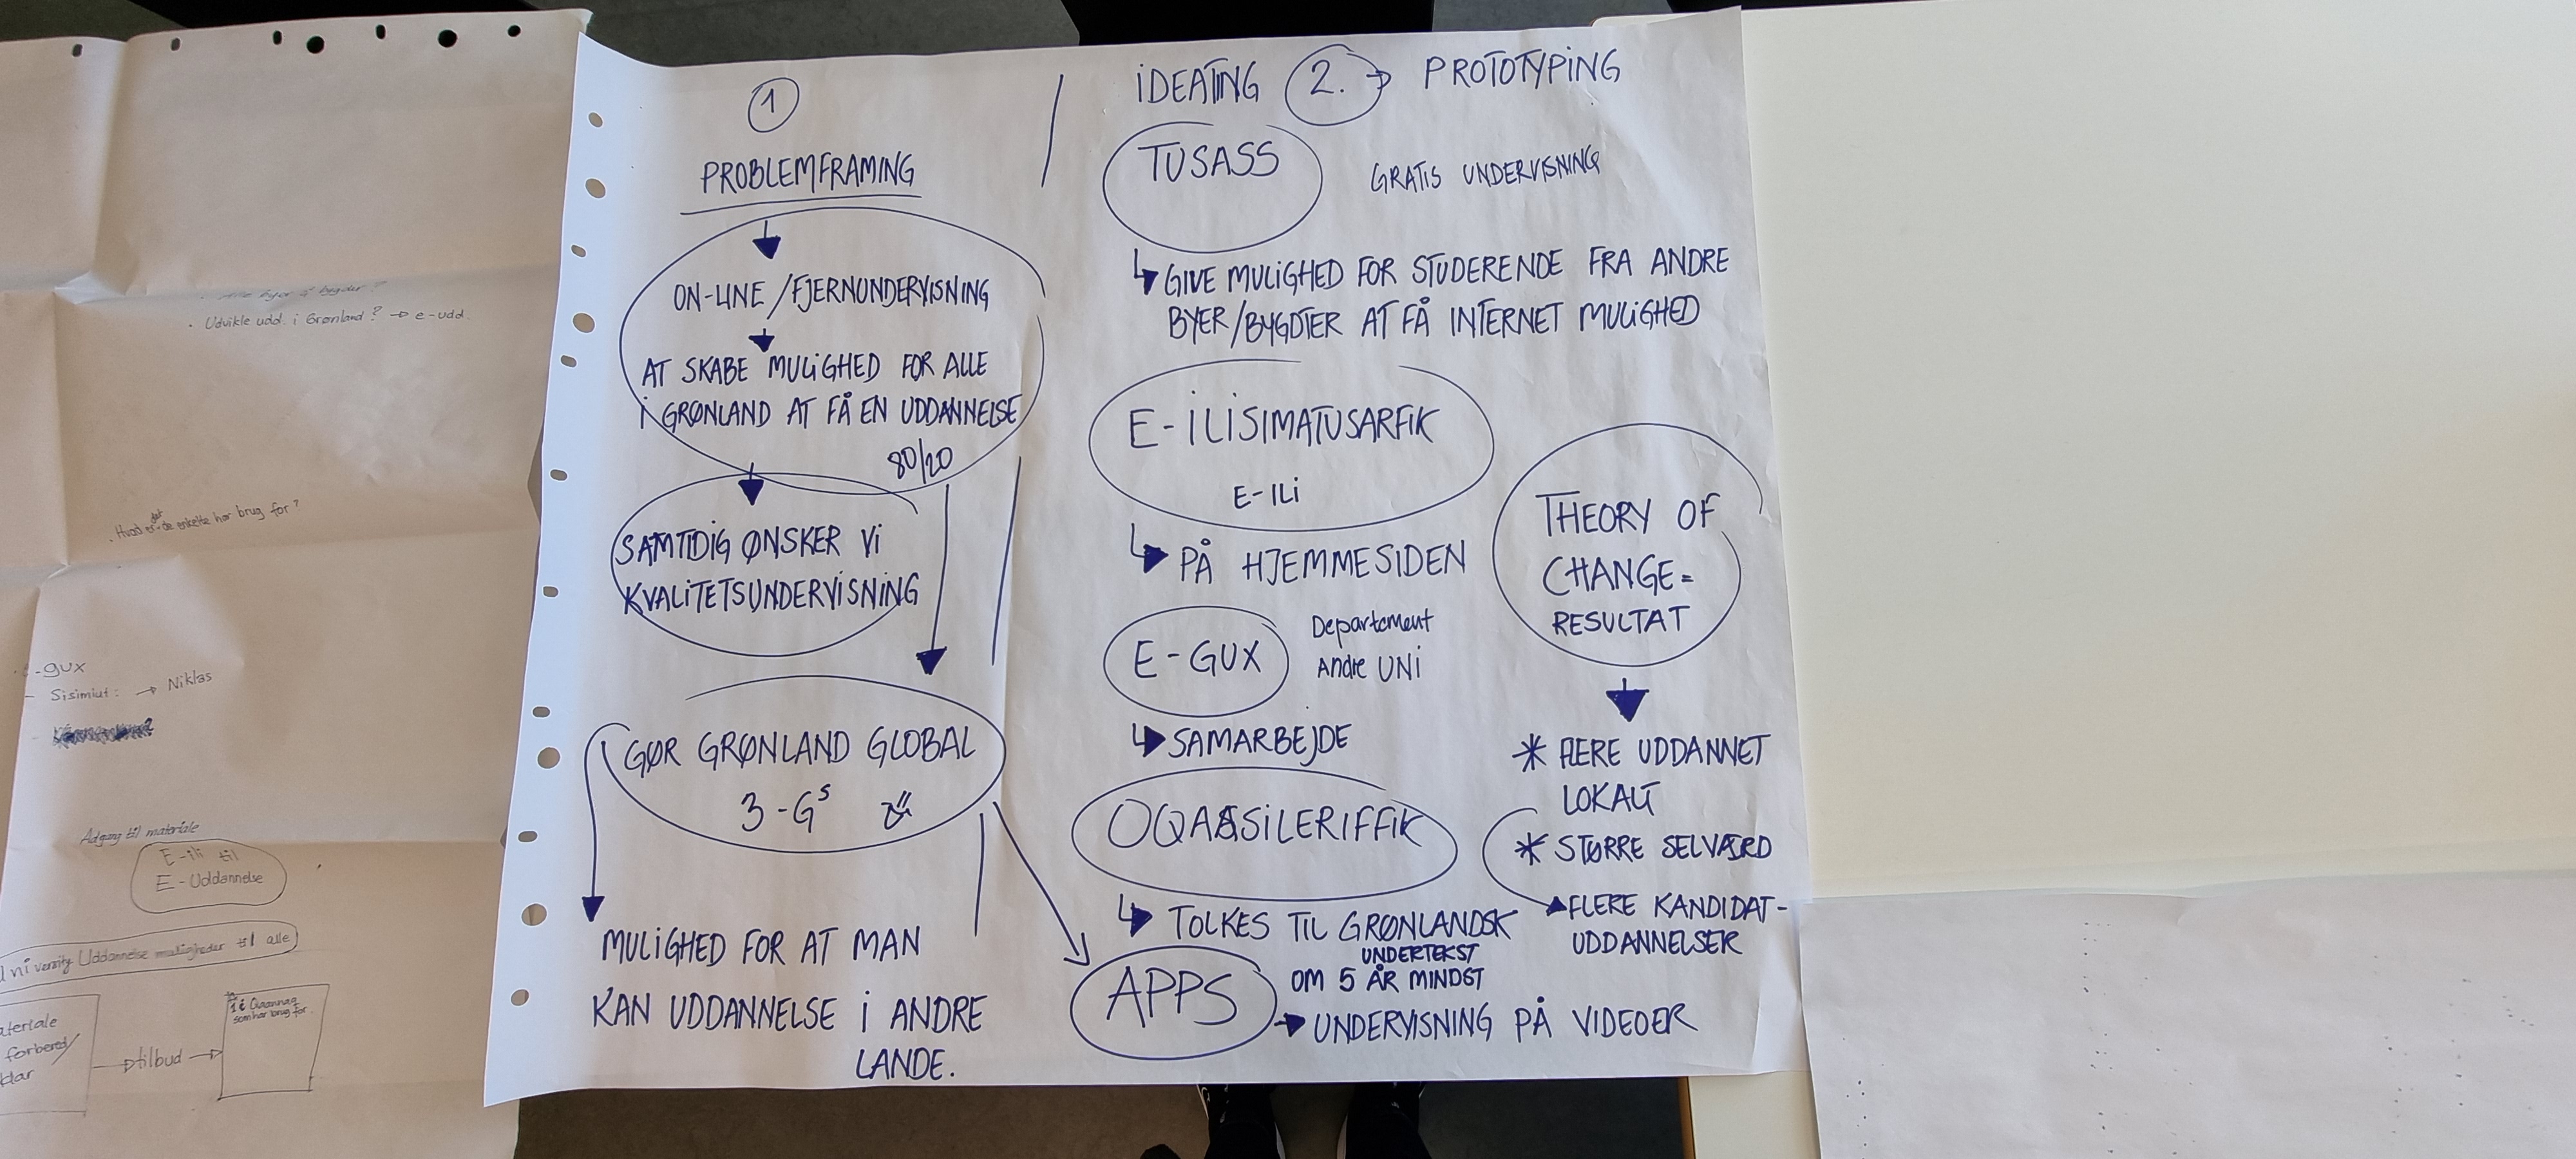 · Udvikle udd. i Grønland? → e-udd.
· Hvad er det de enkelte har brug for?
-gux
- Sisimiut: → Niklas
Adgang til materiale
E-ili til
E-Uddannelse
University Uddannelse muligheder til alle
forbered/
→ tilbud →
som har brug for.
1
PROBLEMFRAMING
ON-LINE/FJERNUNDERVISNING
AT SKABE MULIGHED FOR ALLE
I GRØNLAND AT FÅ EN UDDANNELSE
80/20
SAMTIDIG ØNSKER VI
KVALITETSUNDERVISNING
GØR GRØNLAND GLOBAL
3-Gs
MULIGHED FOR AT MAN
KAN UDDANNELSE I ANDRE
LANDE.
IDEATING 2. → PROTOTYPING
TUSASS
GRATIS UNDERVISNING
GIVE MULIGHED FOR STUDERENDE FRA ANDRE
BYER/BYGDTER AT FÅ INTERNET MULIGHED
E-ILISIMATUSARFIK
E-ILI
PÅ HJEMMESIDEN
E-GUX
Departement
Andre UNI
SAMARBEJDE
OQAASILERIFFIK
TOLKES TIL GRØNLANDSK
UNDERTEKST
OM 5 ÅR MINDST
APPS
→ UNDERVISNING PÅ VIDEOER
THEORY OF
CHANGE =
RESULTAT
* FLERE UDDANNET
LOKALT
* STØRRE SELVÆRD
FLERE KANDIDAT-
UDDANNELSER